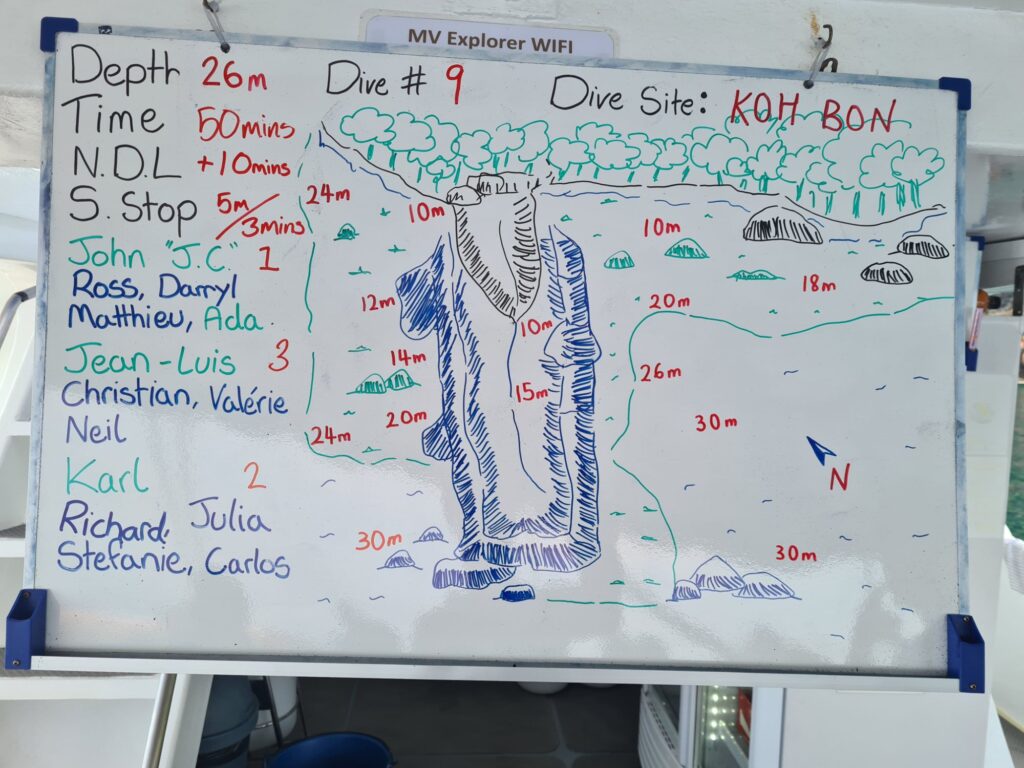 MV Explorer WIFI
Depth 26m Dive # 9 Dive Site: KOH BON
Time 50mins
N.D.L +10mins
S. Stop 5m/3mins
John "J.C." 1
Ross, Darryl
Matthieu, Ada
Jean-Luis 3
Christian, Valérie
Neil
Karl 2
Richard, Julia
Stefanie, Carlos
24m
10m
10m
18m
12m
20m
10m
14m
26m
15m
20m
30m
24m
N
30m
30m